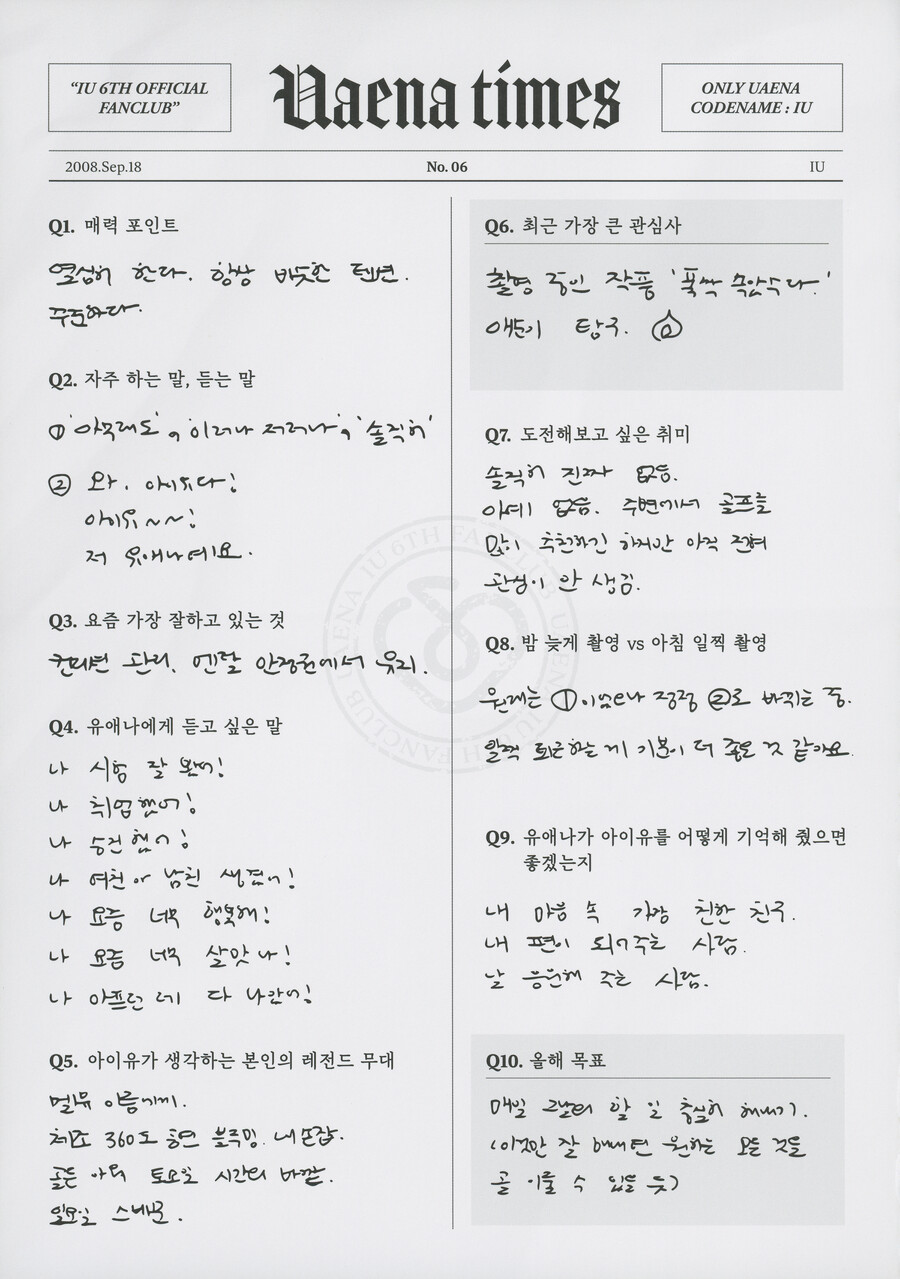 “IU 6TH OFFICIAL
FANCLUB”
Uaena times
ONLY UAENA
CODENAME : IU
2008.Sep.18
No. 06
IU
Q1. 매력 포인트
열심히 한다. 항상 비슷한 텐션.
꾸준하다.
Q2. 자주 하는 말, 듣는 말
① '아무래도', '이러나 저러나', '솔직히'
② 와, 아이유다!
아이유~~!
저 유애나예요.
Q3. 요즘 가장 잘하고 있는 것
컨디션 관리. 멘탈 안정권에서 유지.
Q4. 유애나에게 듣고 싶은 말
나 시험 잘 봤어!
나 취업했어!
나 승진했어!
나 여친 or 남친 생겼어!
나 요즘 너무 행복해!
나 요즘 너무 살맛 나!
나 아프던 데 다 나았어!
Q5. 아이유가 생각하는 본인의 레전드 무대
멜뮤 이름에게.
체조 360도 공연 불족밍. 내손잡.
골든 아워 토요일 시간의 바깥.
일요일 스네폰.
Q6. 최근 가장 큰 관심사
촬영 중인 작품 '폭싹 속았수다.'
애순이 탐구.
Q7. 도전해보고 싶은 취미
솔직히 진짜 없음.
아예 없음. 주변에서 골프를
많이 추천하긴 하지만 아직 전혀
관심이 안 생김.
Q8. 밤 늦게 촬영 vs 아침 일찍 촬영
원래는 ①이었으나 점점 ②로 바뀌는 중.
일찍 퇴근하는 게 기분이 더 좋은 것 같아요.
Q9. 유애나가 아이유를 어떻게 기억해 줬으면
좋겠는지
내 마음 속 가장 친한 친구.
내 편이 되어주는 사람.
날 응원해 주는 사람.
Q10. 올해 목표
매일 그날의 할 일 충실히 해내기.
(이것만 잘 해내면 원하는 모든 것을
곧 이룰 수 있을 듯)
UAENA IU 6TH FANCLUB UAENA IU 6TH FANCLUB